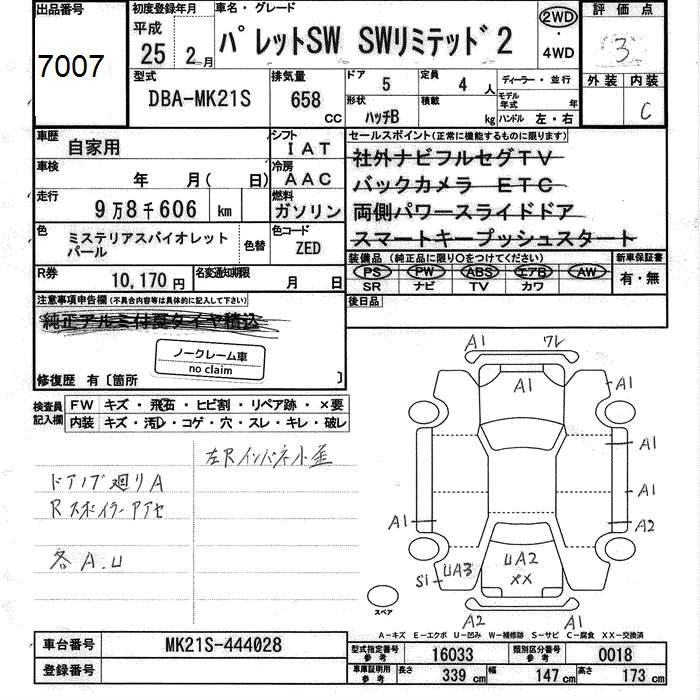 出品番号
7007
初度登録年月
平成
25年 2月
車名・グレード
パレットSW SWリミテッド2
2WD
・
4WD
評価点
3
外装 内装
C
型式
DBA-MK21S
排気量
658 CC
ドア 5
定員 4 人
形状 ハッチB
積載 kg
ディーラー・並行
モデル年式 年
ハンドル 左・右
車歴 自家用
シフト IAT
車検 年 月( 日)
冷房 AAC
走行 9万8千606 km
燃料 ガソリン
色 ミステリアスバイオレット
パール
色替
色コード ZED
R券 10,170円
名変通知期限 月 日
セールスポイント(正常に機能するものに限ります)
社外ナビフルセグTV
バックカメラ ETC
両側パワースライドドア
スマートキープッシュスタート
装備品(純正品に限り○をつけてください)
PS PW ABS エアB AW
SR ナビ TV カワ
新車保証書
有・無
後日品
注意事項申告欄(不具合内容等は具体的に記入して下さい)
純正アルミ付夏タイヤ積込
ノークレーム車
no claim
修復歴 有〔箇所 〕
検査員記入欄
FW キズ・飛石・ヒビ割・リペア跡・×要
内装 キズ・汚レ・コゲ・穴・スレ・キレ・破レ
左Rインパネ小歪
ドアノブ廻りA
Rスポイラーアアセ
各A.U
A1 ワレ
A1 A1
A1
A1
A1 A2
UA3 UA2
S1 XX
A2 A1
スペア
A−キズ E−エクボ U−凹み W−補修跡 S−サビ C−腐食 XX−交換済
車台番号 MK21S-444028
登録番号
型式指定番号 参考 16033
類別区分番号 参考 0018
車庫証明用 参考 長さ 339 cm 幅 147 cm 高さ 173 cm